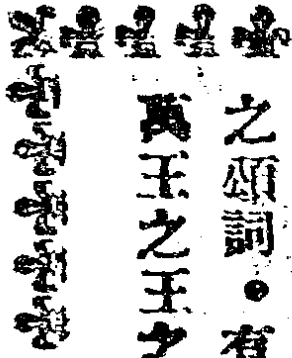 之頌詞。有
萬王之王